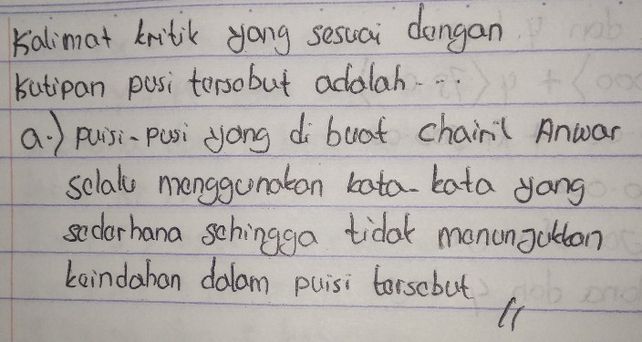 Kalimat kritik yang sesuai dengan
kutipan pusi tersebut adalah...
a.) puisi-pusi yang di buat chairil Anwar
selalu menggunakan kata-kata yang
sederhana sehingga tidak menunjukkan
keindahan dalam puisi tersebut